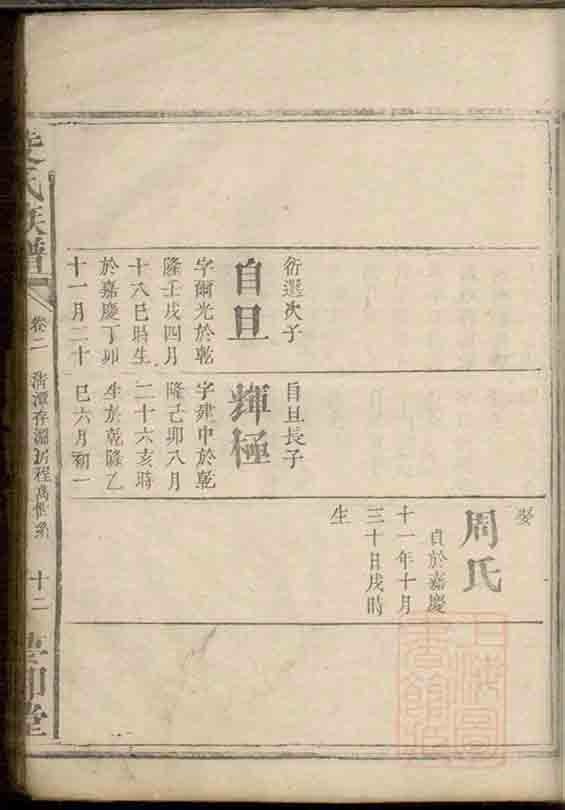 衍選次子
自旦
字爾光於乾
隆壬戌四月
十八巳時生
於嘉慶丁卯
十一月二十
自旦長子
輝極
字建中於乾
隆己卯八月
二十六亥時
生於乾隆乙
巳六月初一
娶
周氏
貞於嘉慶
十一年十月
三十日戌時
生
氏族譜
卷二
十二
堂
上海圖
書館藏